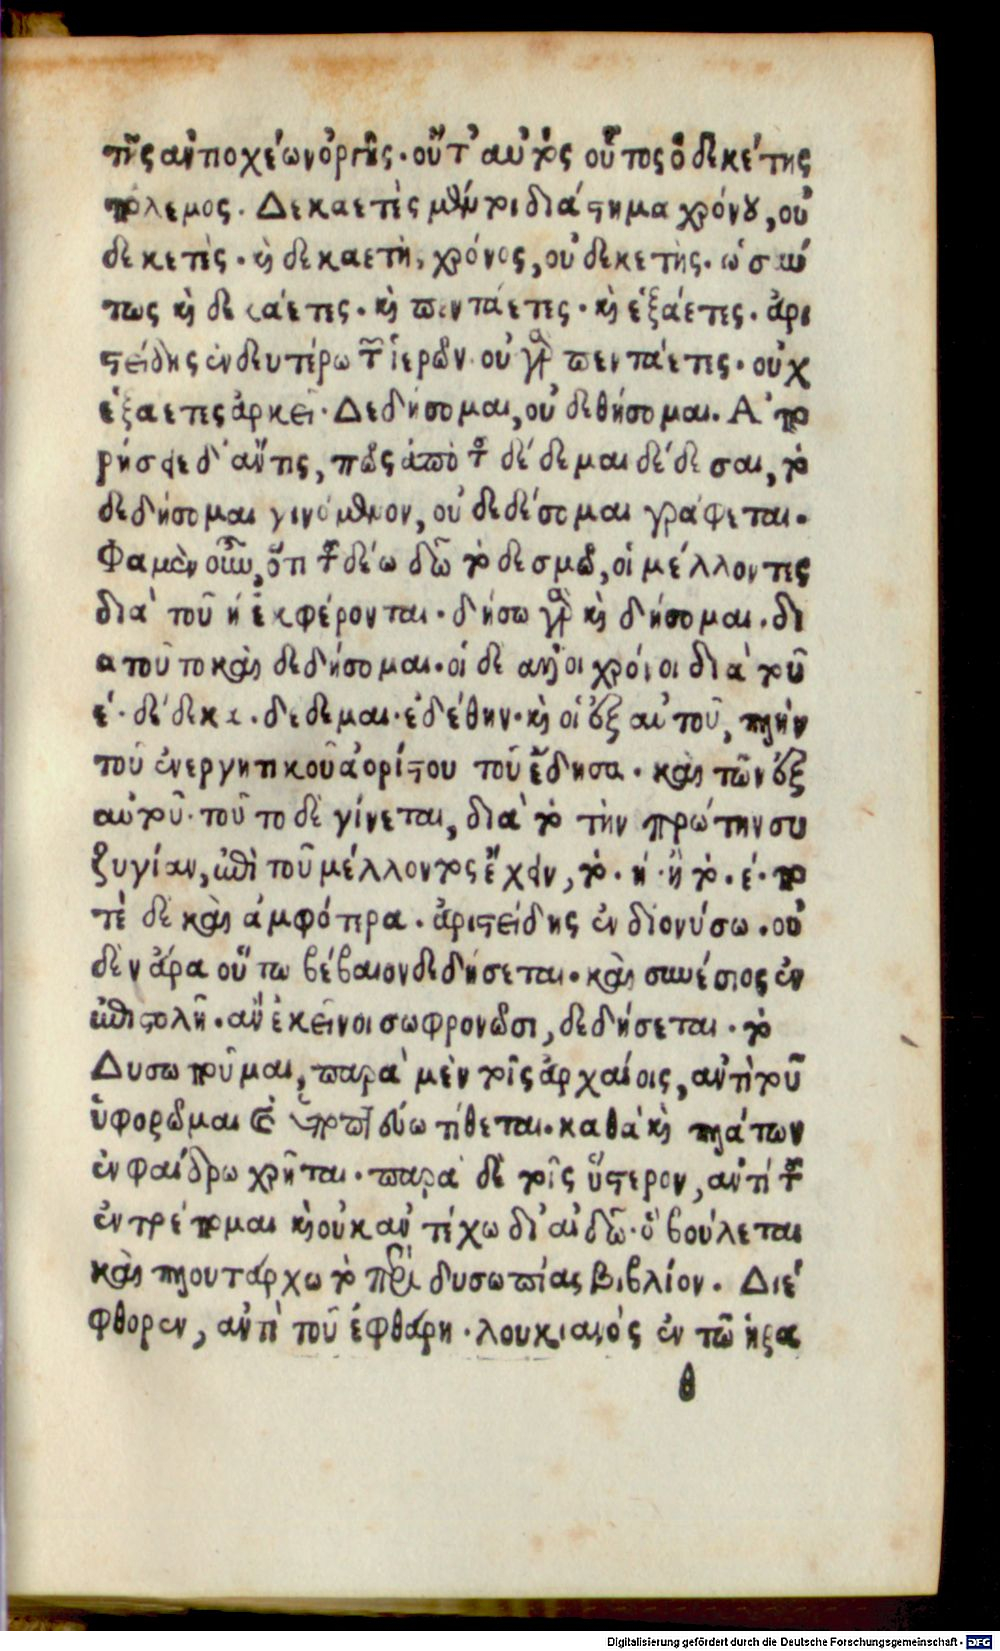 τῆς ἀντιοχέων ὀργῆς. οὔτ' αὐτὸς οὗτος ὁ δεκέτης
πόλεμος. Δεκαετὲς μέντοι διάστημα χρόνου, οὐ
δεκετὲς. καὶ δεκαετὴς χρόνος, οὐ δεκετής. ὡσαύ
τως καὶ δεκάετες. καὶ πεντάετες. καὶ ἑξάετες. ἀρι
στείδης ἐν δευτέρω τῶν ἱερῶν. οὐ γὰρ πεντάετες. οὐχ
ἑξάετες ἀρκεῖ. Δεδήσομαι, οὐ δεθήσομαι. Απο
ρήσειε δ' ἄν τις, πῶς ἀπὸ τοῦ δέδεμαι δέδεσαι, τὸ
δεδήσομαι γινόμενον, οὐ δεδέσομαι γράφεται.
Φαμὲν οὖν, ὅτι τοῦ δέω δῶ τὸ δεσμῶ, οἱ μέλλοντες
διὰ τοῦ η ἐκφέρονται. δήσω γὰρ καὶ δήσομαι. δι
α τοῦτο καὶ δεδήσομαι. οἱ δὲ ἄλλοι χρόνοι διὰ τοῦ
ε. δέδεκα. δέδεμαι. ἐδέθην. καὶ οἱ ἐξ αὐτοῦ, πλὴν
τοῦ ἐνεργητικοῦ ἀορίστου τοῦ ἔδησα. καὶ τῶν ἐξ
αὐτοῦ. τοῦτο δὲ γίνεται, διὰ τὸ τὴν πρώτην συ
ζυγίαν, ἐπὶ τοῦ μέλλοντος ἔχειν, τὸ. η. ἢ τὸ. ε. πο
τὲ δὲ καὶ ἀμφότερα. ἀριστείδης ἐν διονύσω. οὐ
δὲν ἄρα οὕτω βέβαιον δεδήσεται. καὶ συνέσιος ἐν
ἐπιστολῆ. ἂν ἐκεῖνοι σωφρονῶσι, δεδήσεται. τὸ
Δυσωποῦμαι, παρὰ μὲν τοῖς ἀρχαίοις, ἀντὶ τοῦ
ὑφορῶμαι καὶ ὑποπτεύω τίθεται. καθὰ καὶ πλάτων
ἐν φαίδρω χρῆται. παρὰ δὲ τοῖς ὕστερον, ἀντὶ τοῦ
ἐντρέπομαι καὶ οὐκ ἀντέχω δι' αἰδῶ. ὃ βούλεται
καὶ πλουτάρχω τὸ περὶ δυσωπίας βιβλίον. Διέ
φθορεν, ἀντὶ τοῦ ἐφθάρη. λουκιανός ἐν τῶ ἠρα
θ
Digitalisierung gefördert durch die Deutsche Forschungsgemeinschaft - DFG